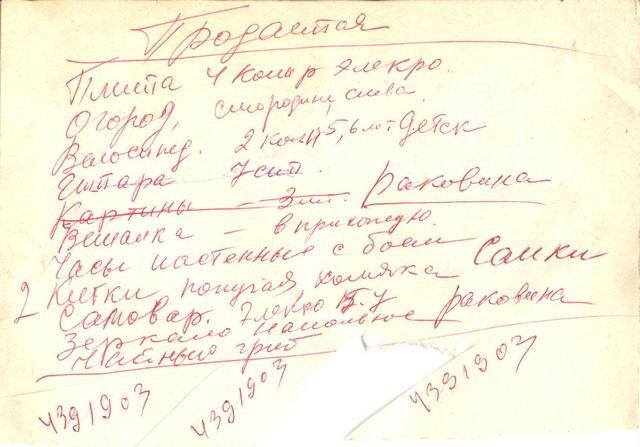 Продается
Плита 4 комф электро.
Огород, смородина, слива
Велосипед. 2 кол 4-5, 6 лет Детск
Гитара 7 сит.
Картины - 3 шт. раковина
Вешалка - в прихожую.
Часы настенные с боем
2 Клетки, попугая, хомяка Санки
Самовар. Электро Б.У
Зеркало напольное раковина
Чайный гриб
4391903 4391903 4391903